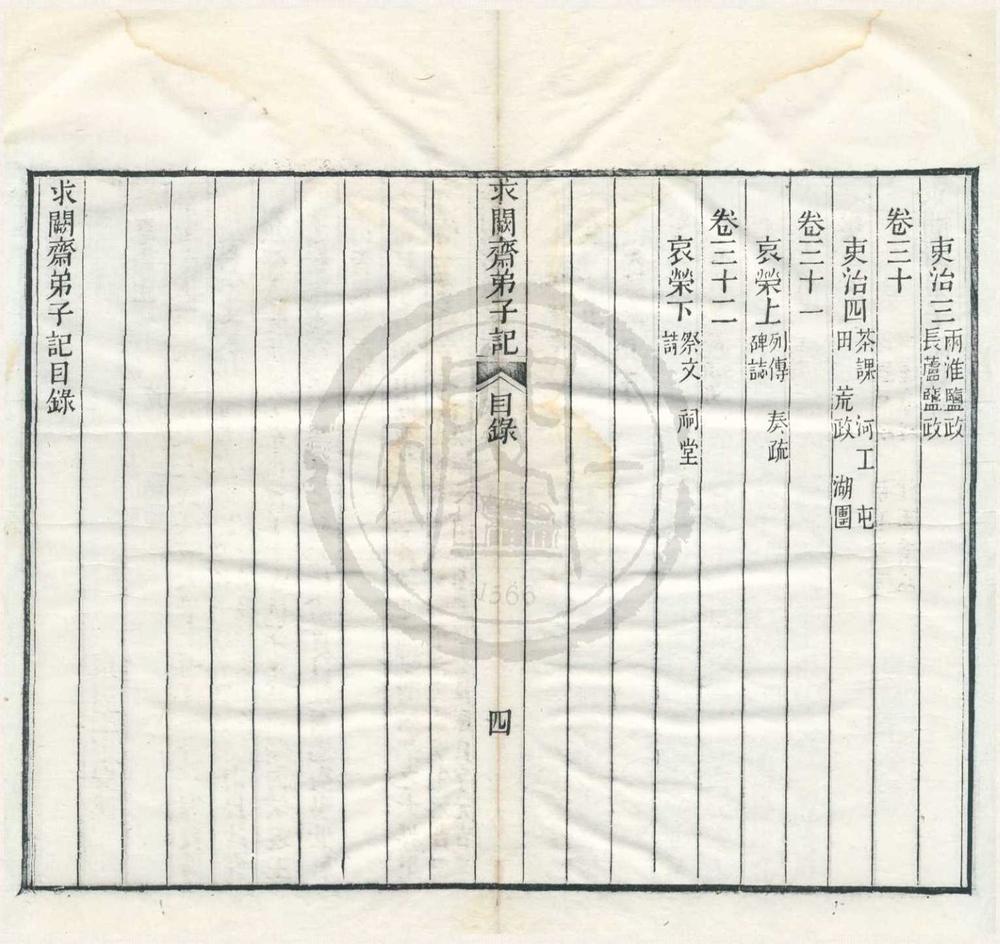 吏治三 兩淮鹽政 長蘆鹽政
卷三十
吏治四 茶課 河工 屯田 荒政 湖團
卷三十一
哀榮上 列傳 奏疏 碑誌
卷三十二
哀榮下 祭文 祠堂 請
求闕齋弟子記 目錄 四
求闕齋弟子記目錄
1566